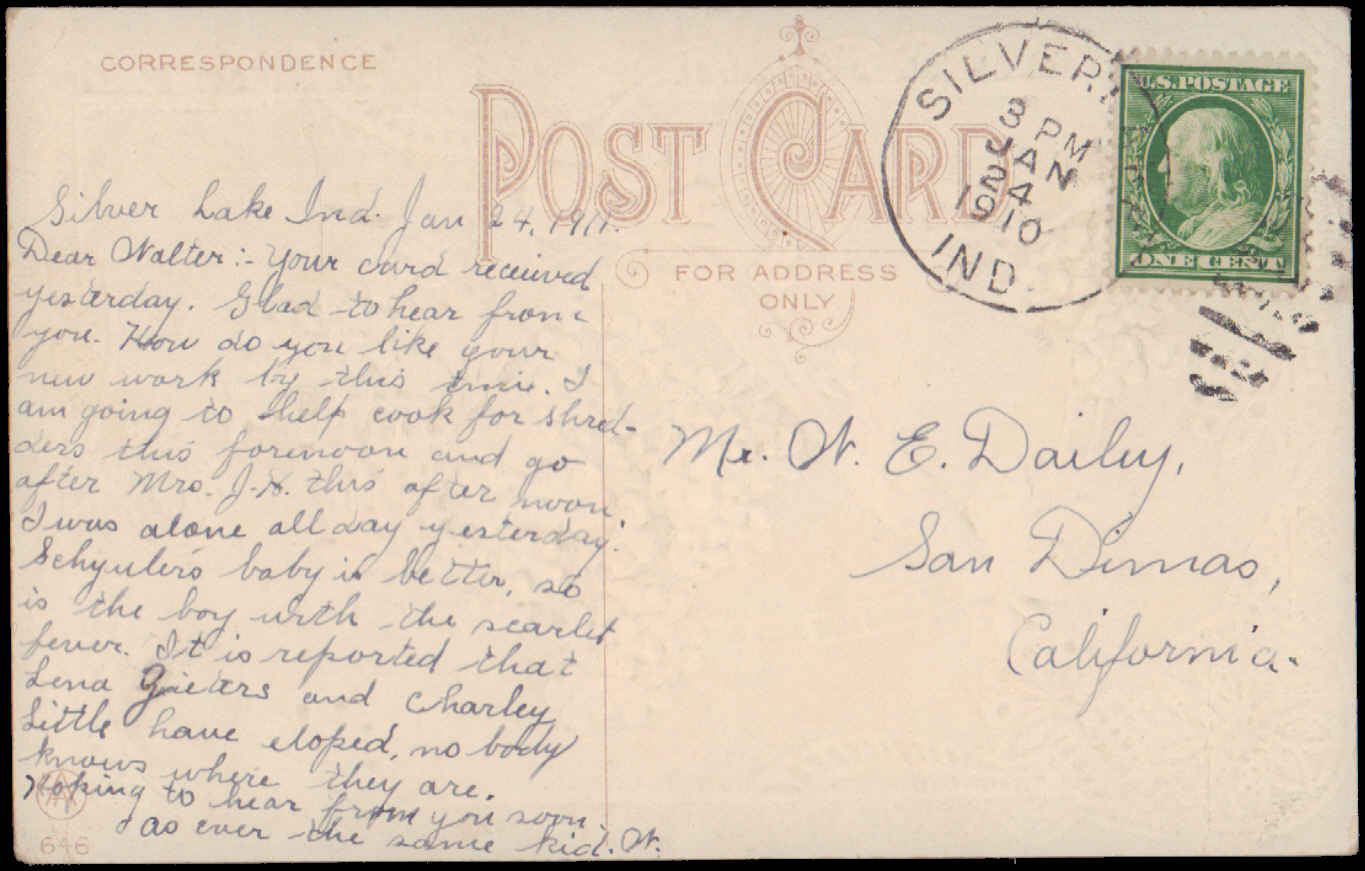 CORRESPONDENCE
POST CARD
FOR ADDRESS
ONLY
SILVER
3 PM
JAN
24
1910
IND.
U.S. POSTAGE
ONE CENT
Silver Lake Ind. Jan 24, 1911.
Dear Walter:- Your card received
yesterday. Glad to hear from
you. How do you like your
new work by this time. I
am going to help cook for shred-
ders this forenoon and go
after Mrs. J. H. this after noon.
I was alone all day yesterday.
Schyulers baby is better, so
is the boy with the scarlet
fever. It is reported that
Lena and Charley
Little have eloped, no body
knows where they are.
Hoping to hear from you soon
As ever the same kid. W.
646
Mr. W. E. Dailey,
San Dimas,
California.